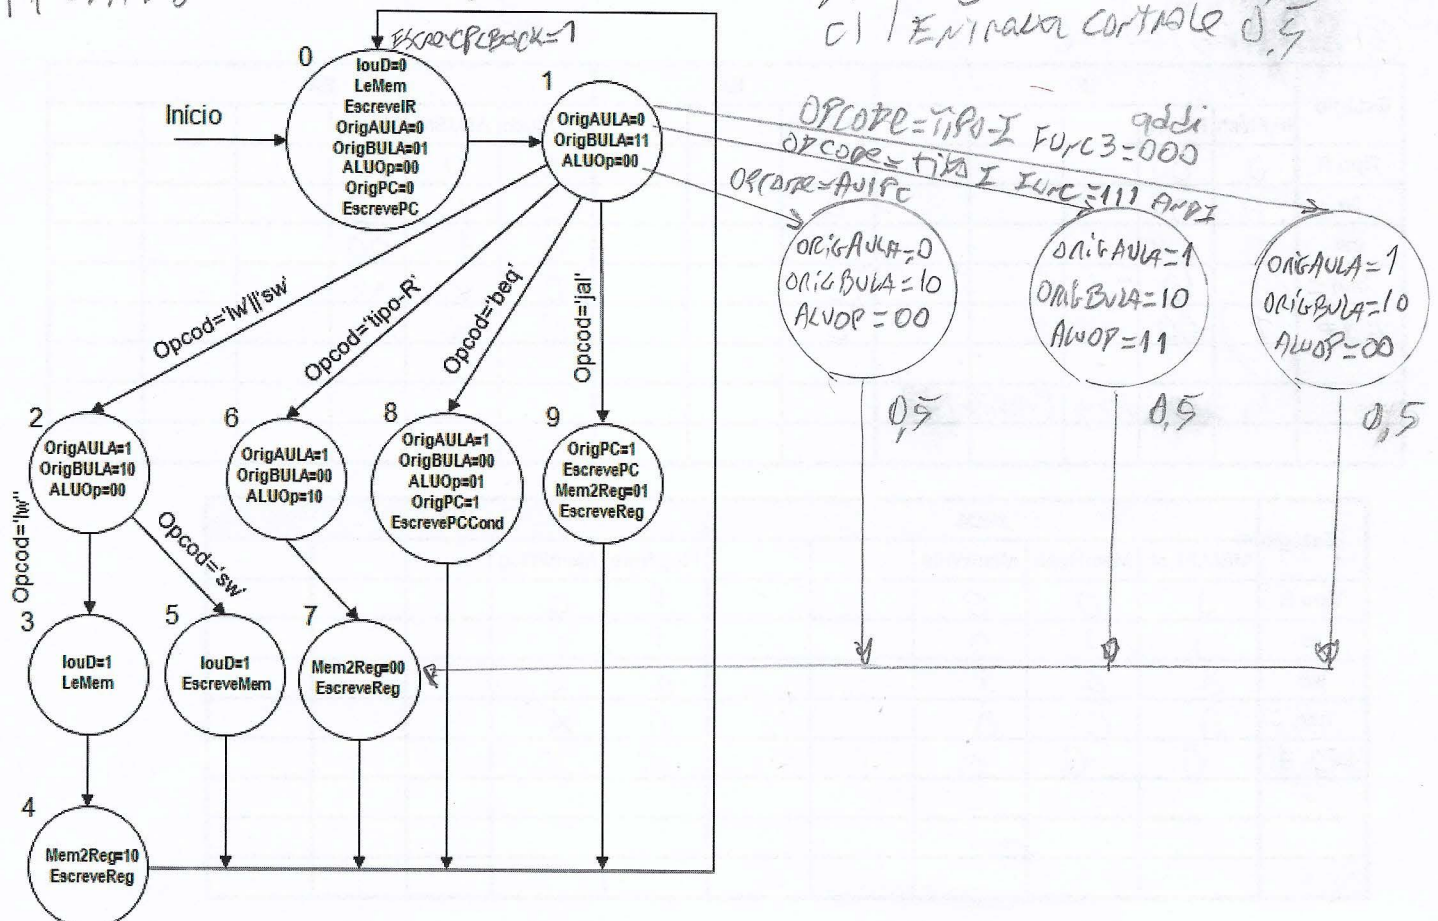 c) 1 Entrada controle 0,5
EscrevePCBack=1
0
IouD=0
LeMem
EscreveIR
OrigAULA=0
OrigBULA=01
ALUOp=00
OrigPC=0
EscrevePC
Início
1
OrigAULA=0
OrigBULA=11
ALUOp=00
OPCODE=TIPO-I FUNC3=000
addi
OPCODE=TIPO I FUNC=111 ANDI
OPCODE=AUIPC
ORIGAULA=0
ORIGBULA=10
ALUOP=00
0,5
ORIGAULA=1
ORIGBULA=10
ALUOP=11
0,5
ORIGAULA=1
ORIGBULA=10
ALUOP=00
0,5
Opcod='lw'||'sw'
Opcod='tipo-R'
Opcod='beq'
Opcod='jal'
2
OrigAULA=1
OrigBULA=10
ALUOp=00
6
OrigAULA=1
OrigBULA=00
ALUOp=10
8
OrigAULA=1
OrigBULA=00
ALUOp=01
OrigPC=1
EscrevePCCond
9
OrigPC=1
EscrevePC
Mem2Reg=01
EscreveReg
Opcod='lw"
Opcod='sw'
3
IouD=1
LeMem
5
IouD=1
EscreveMem
7
Mem2Reg=00
EscreveReg
4
Mem2Reg=10
EscreveReg